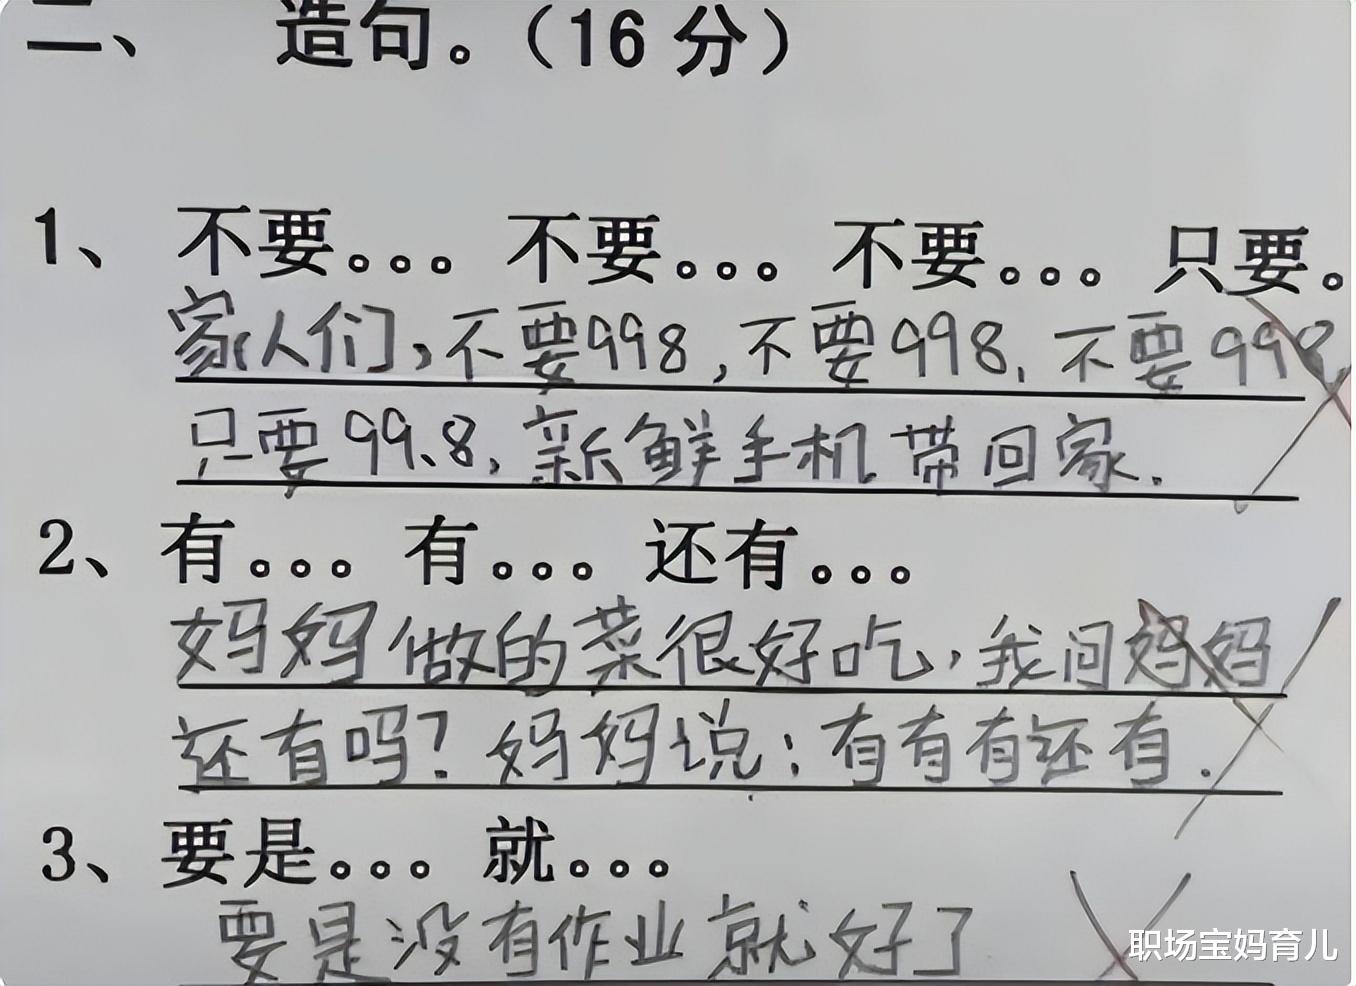 二、 造句。（16分）
1、 不要。。。 不要。。。 不要。。。 只要。
家人们，不要998，不要998，不要998，
只要99.8，新鲜手机带回家.
2、 有。。。 有。。。 还有。。。
妈妈做的菜很好吃，我问妈妈
还有吗？妈妈说：有有有还有.
3、 要是。。。 就。。。
要是没有作业就好了
职场宝妈育儿